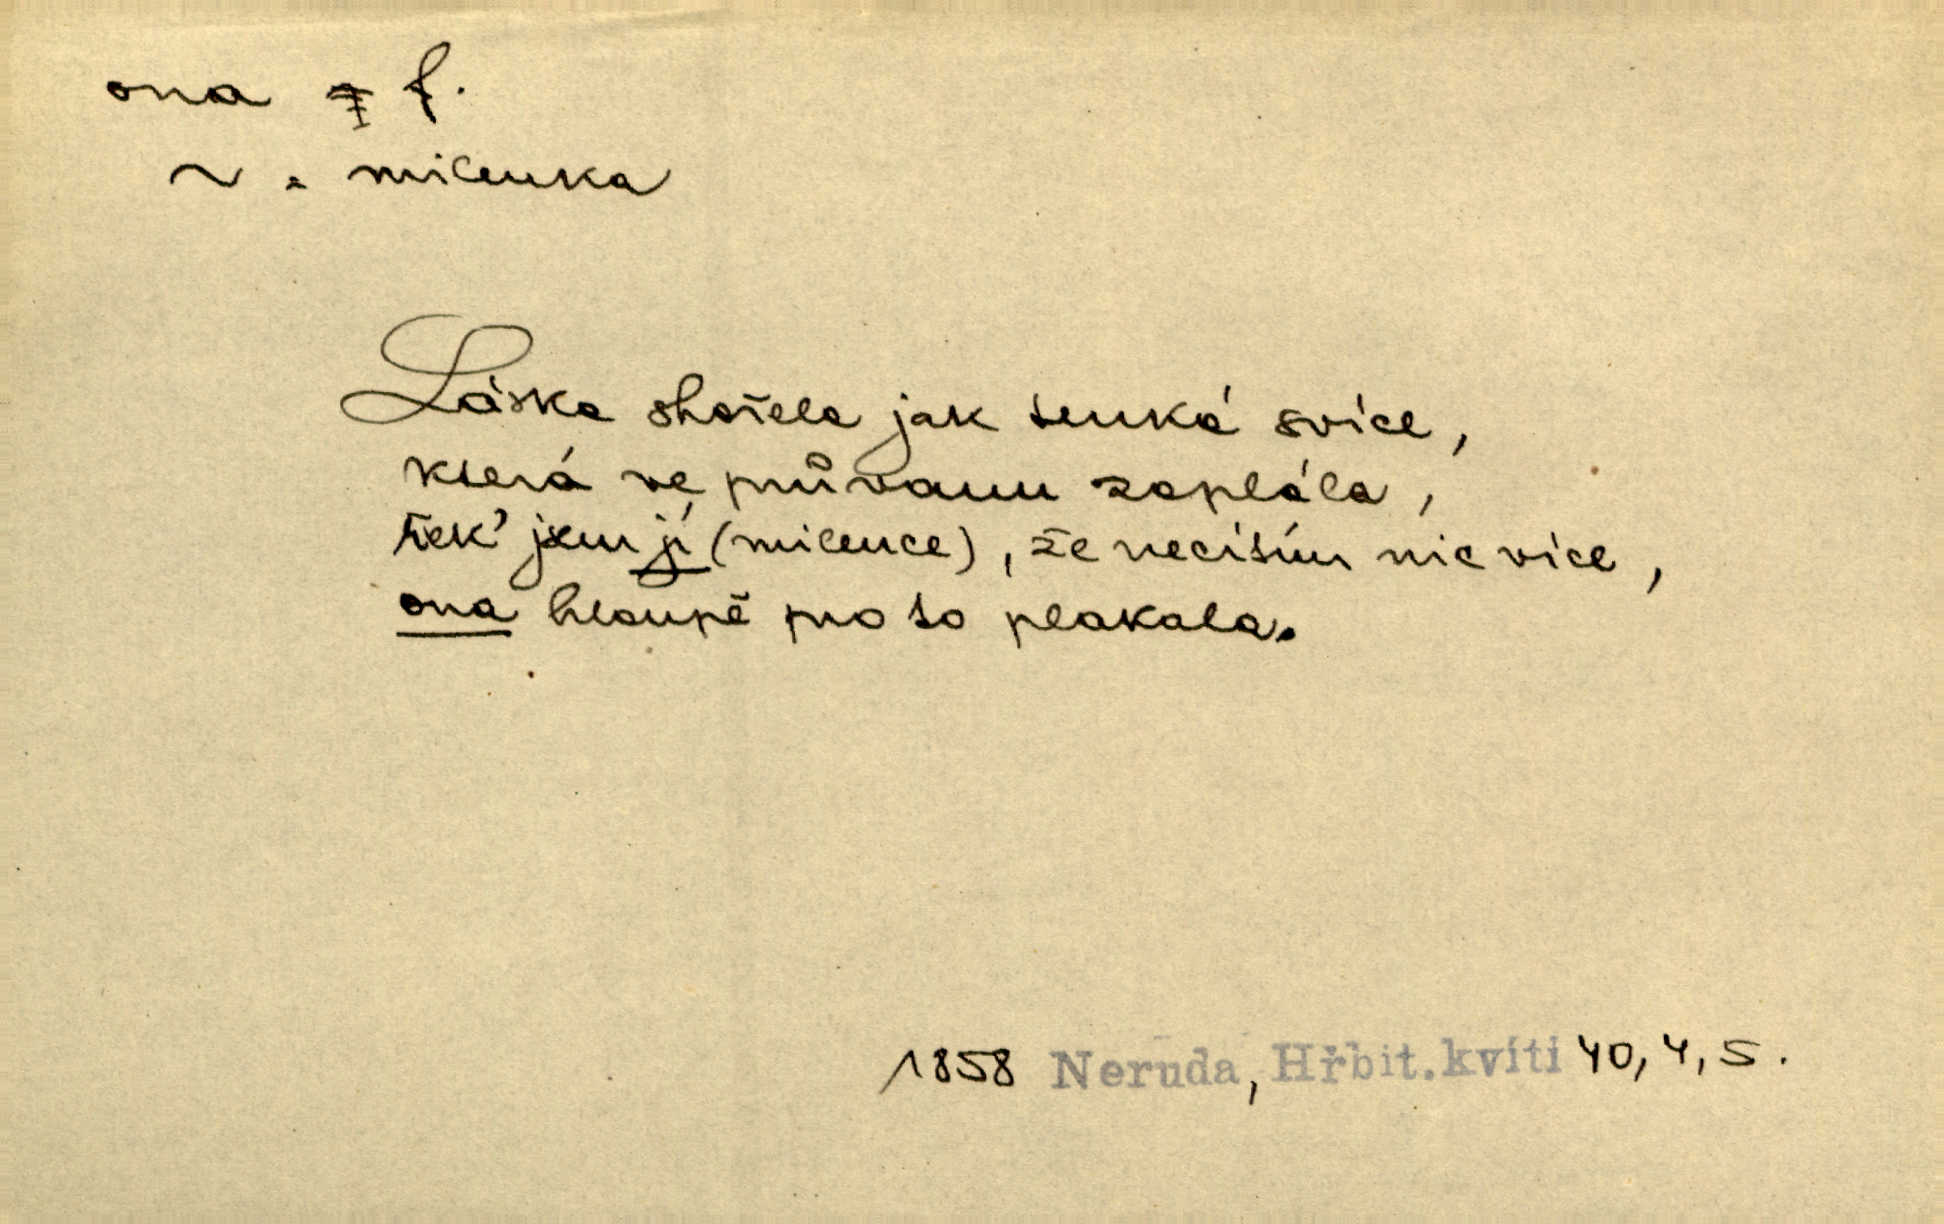 ona f.
~ = milenka
Láska shořela jak tenká svíce,
která ve průvanu zaplála,
řek' jsem jí (milence), že necítím nic více,
ona hloupě pro to plakala.
1858 Neruda, Hřbit. kvítí 40, 4, 5.